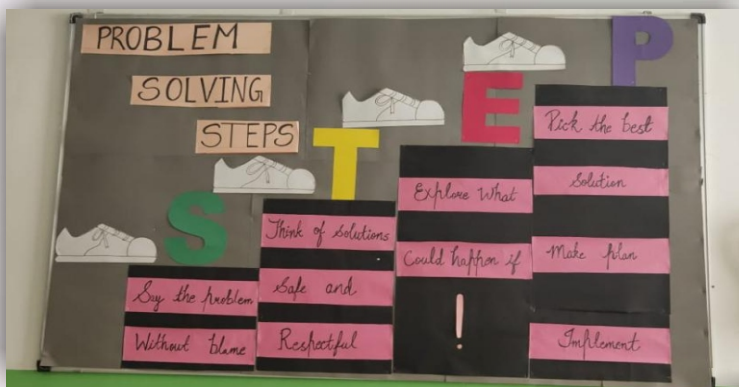 PROBLEM
SOLVING
STEPS
S
Say the problem
Without blame
T
Think of solutions
Safe and
Respectful
E
Explore What
Could happen if
!
P
Pick the best
Solution
Make plan
Implement